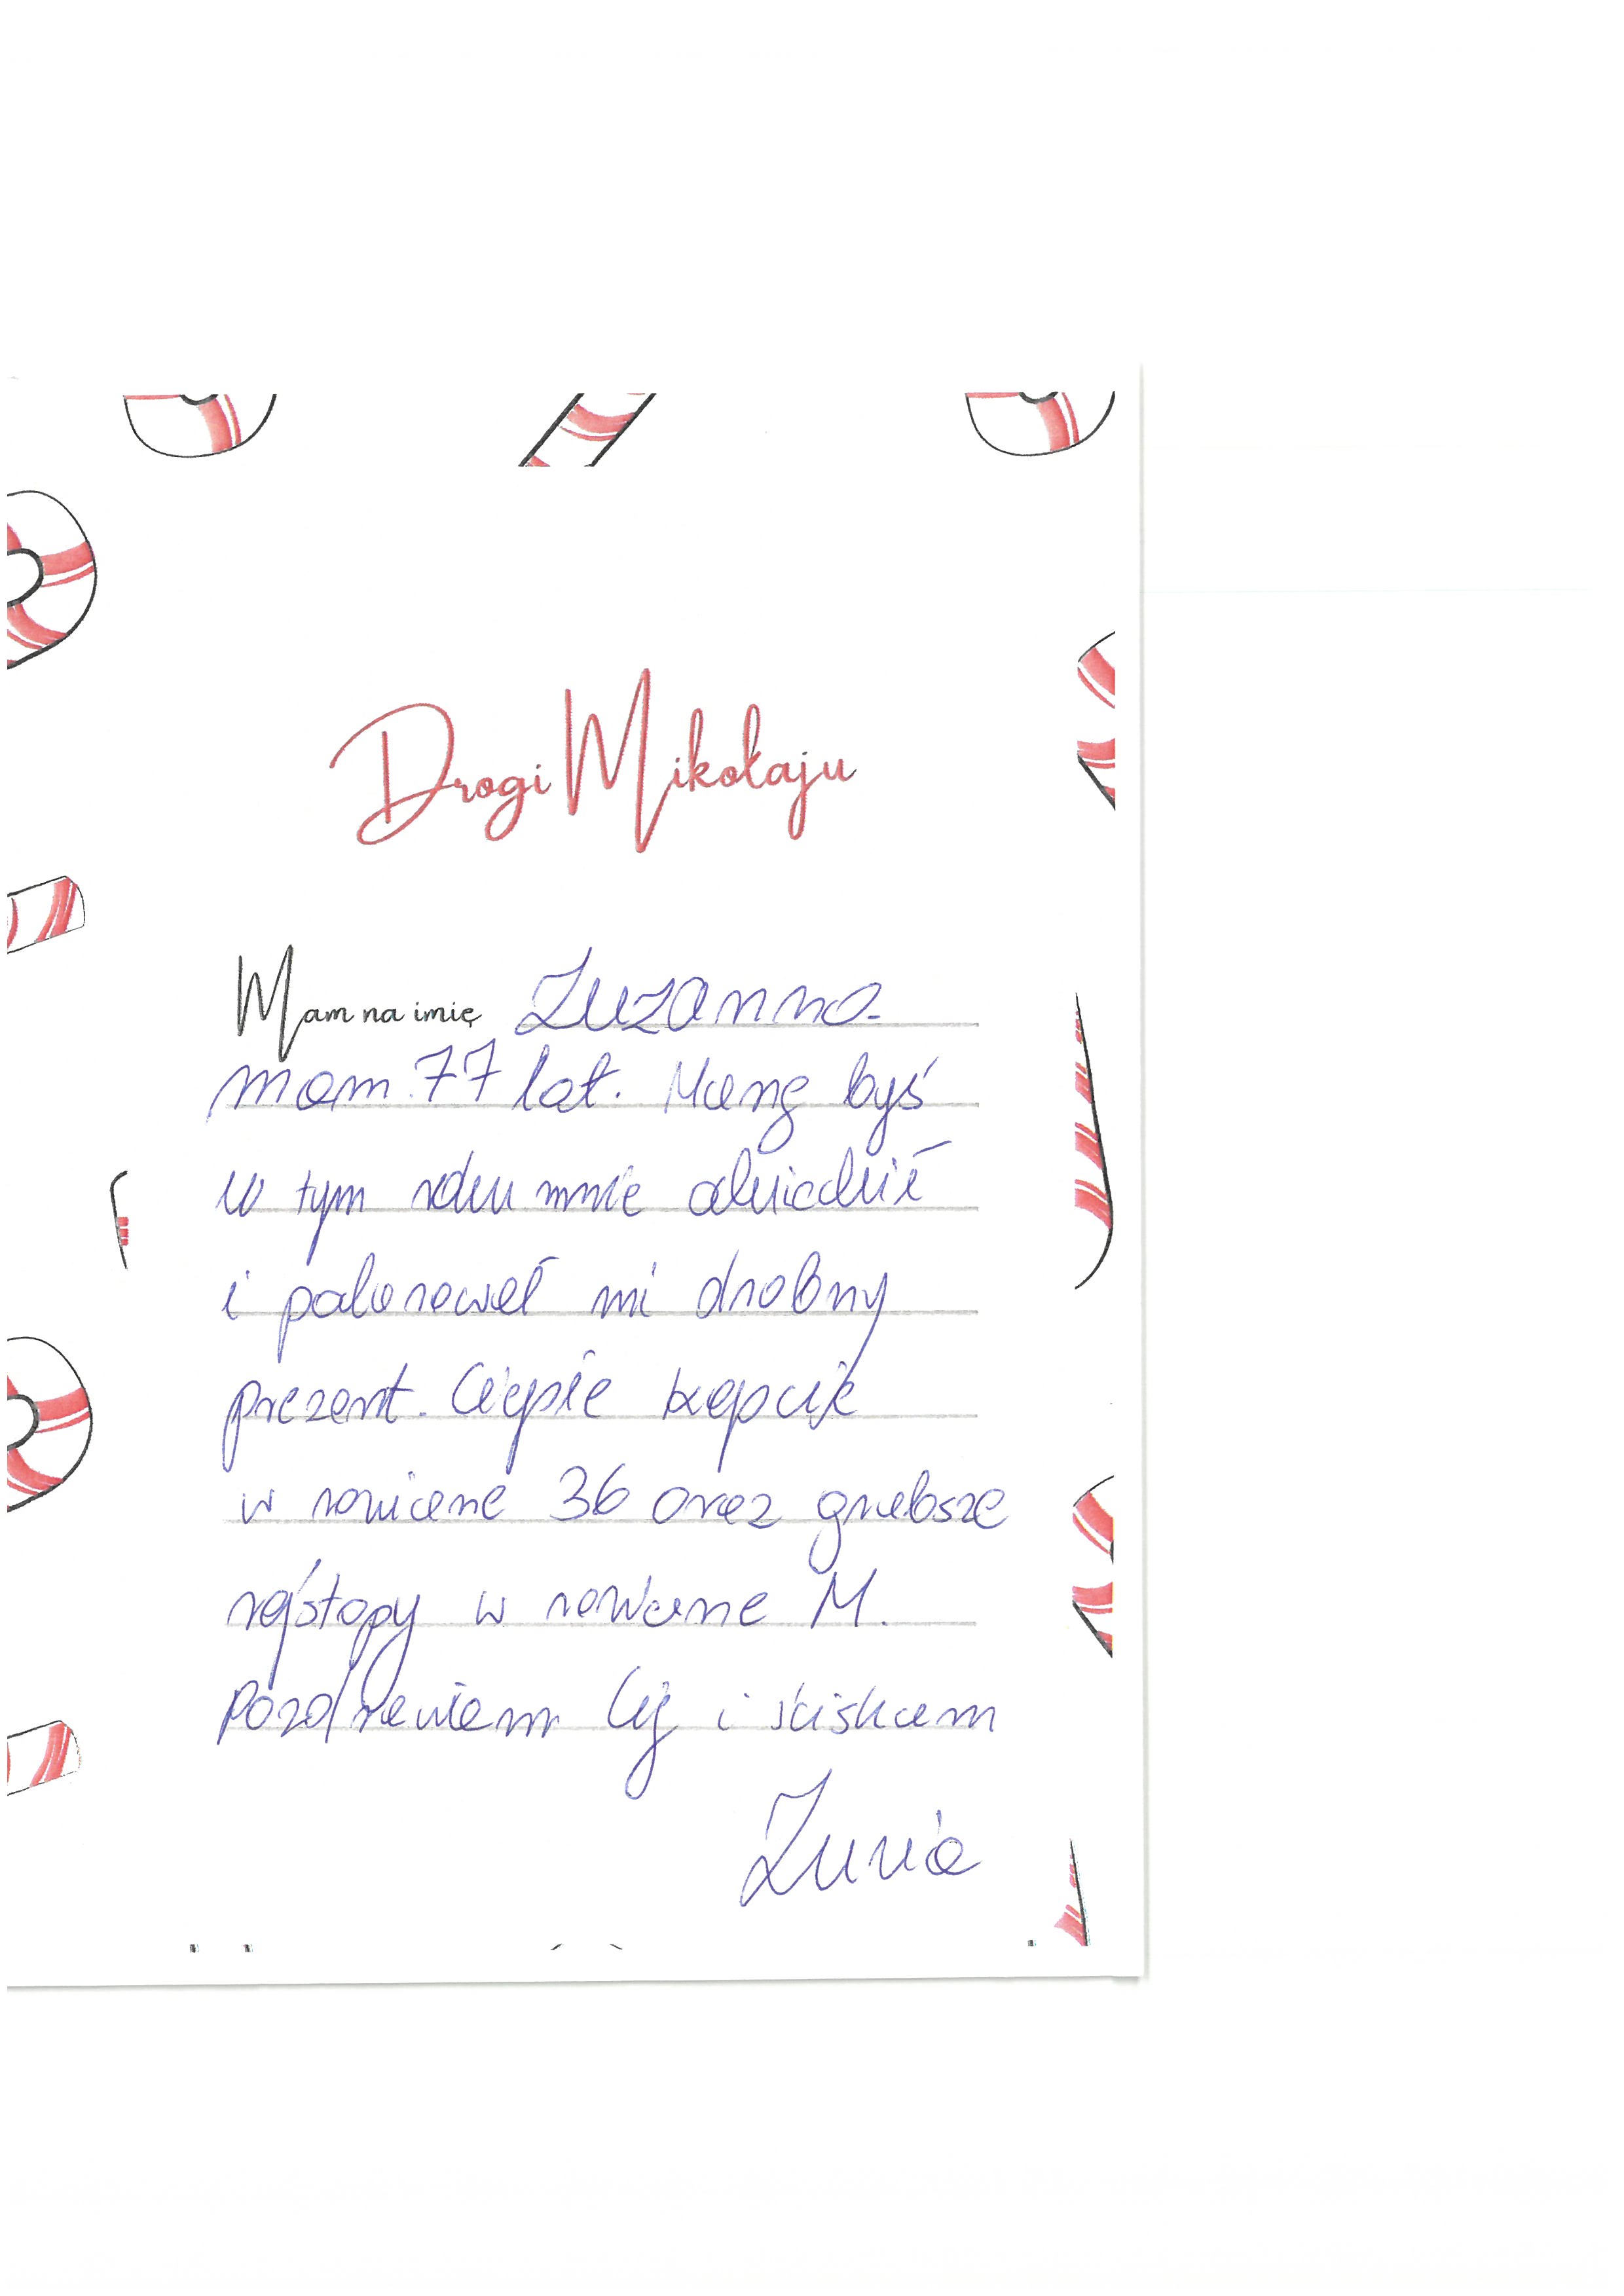 Drogi Mikołaju
Mam na imię Zuzanna
mam 77 lat. Marzę byś
w tym roku mnie odwiedził
i podarował mi drobny
prezent. Ciepłe kapcie
w rozmiarze 36 oraz grubsze
rajstopy w rozmiarze M.
Pozdrawiam Cię i ściskam
Zuzia